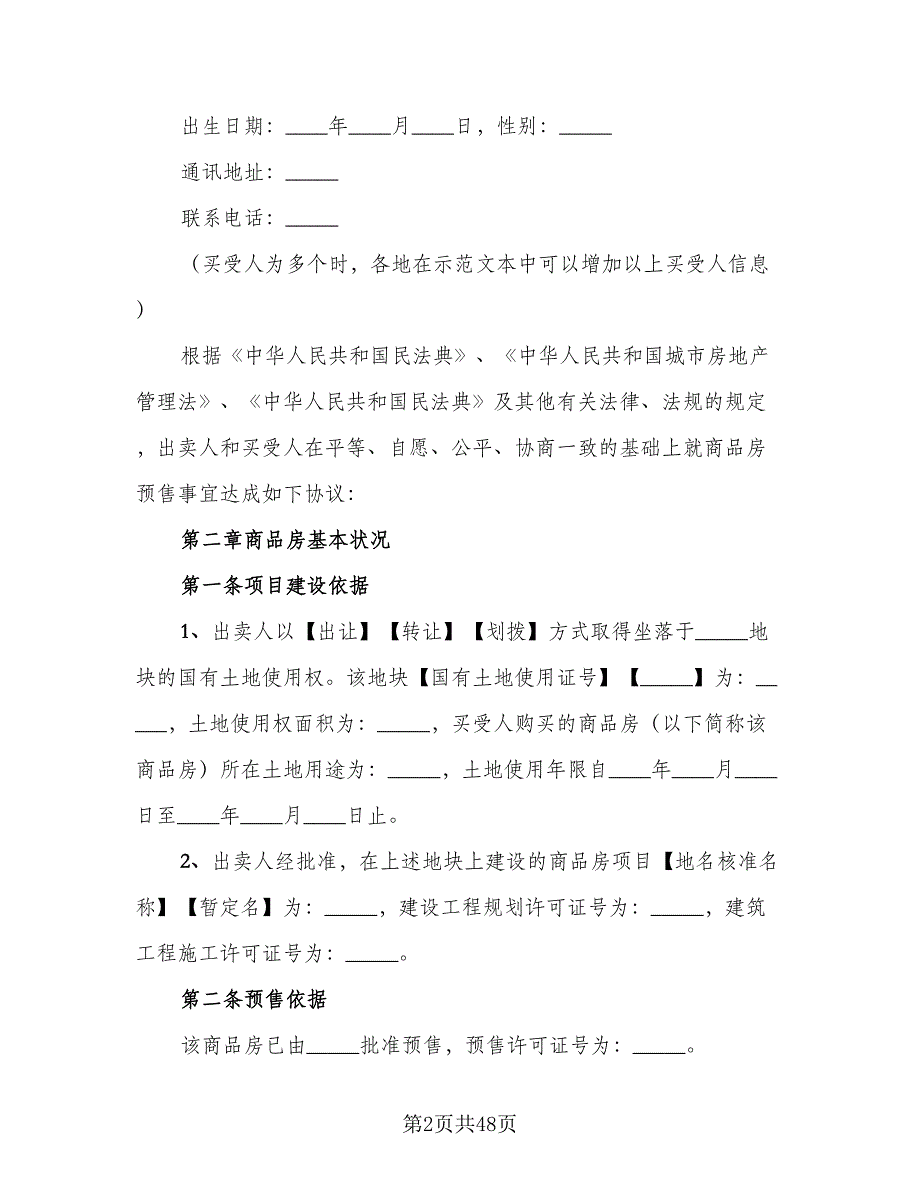 出生日期：____年____月____日，性别：_____
通讯地址：_____
联系电话：_____
（买受人为多个时，各地在示范文本中可以增加以上买受人信息
）
根据《中华人民共和国民法典》、《中华人民共和国城市房地产
管理法》、《中华人民共和国民法典》及其他有关法律、法规的规定
，出卖人和买受人在平等、自愿、公平、协商一致的基础上就商品房
预售事宜达成如下协议：
第二章商品房基本状况
第一条项目建设依据
1、出卖人以【出让】【转让】【划拨】方式取得坐落于_____地
块的国有土地使用权。该地块【国有土地使用证号】【_____】为：__
___，土地使用权面积为：_____，买受人购买的商品房（以下简称该
商品房）所在土地用途为：_____，土地使用年限自____年____月____
日至____年____月____日止。
2、出卖人经批准，在上述地块上建设的商品房项目【地名核准名
称】【暂定名】为：_____，建设工程规划许可证号为：_____，建筑
工程施工许可证号为：_____。
第二条预售依据
该商品房已由_____批准预售，预售许可证号为：_____。
第2页共48页